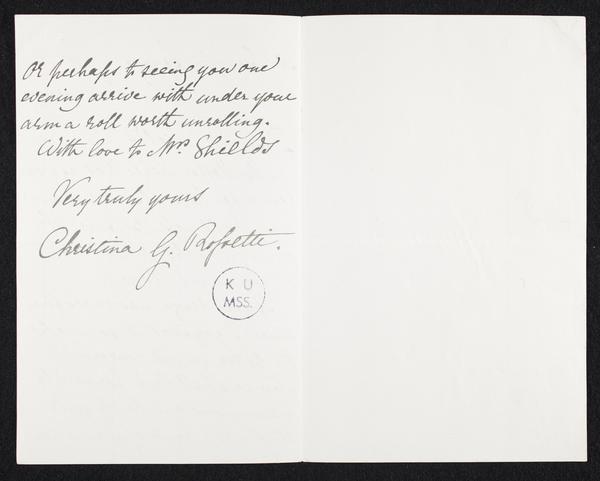 or perhaps to seeing you one
evening arrive with under your
arm a roll worth unrolling.
With love to Mrs Shields
Very truly yours
Christina G. Rossetti.
K U
MSS.